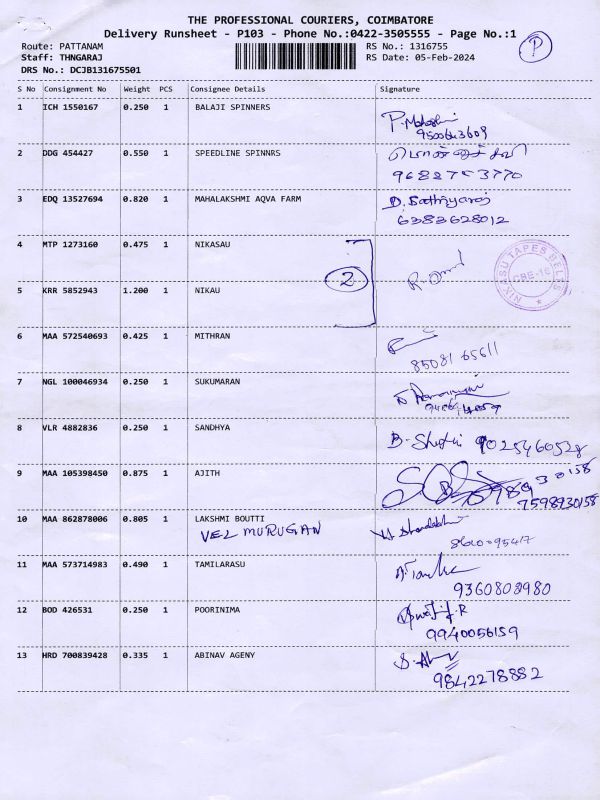 THE PROFESSIONAL COURIERS, COIMBATORE
Delivery Runsheet - P103 - Phone No.:0422-3505555 - Page No.:1
P
Route: PATTANAM RS No.: 1316755
Staff: THNGARAJ RS Date: 05-Feb-2024
DRS No.: DCJB131675501
S No Consignment No Weight PCS Consignee Details Signature
1 ICH 1550167 0.250 1 BALAJI SPINNERS
2 DDG 454427 0.550 1 SPEEDLINE SPINNRS
9688753770
3 EDQ 13527694 0.820 1 MAHALAKSHMI AQVA FARM D. Sathiyaraj
6383628012
4 MTP 1273160 0.475 1 NIKASAU
2
NIKASU TAPES BELTS
CBE-16
5 KRR 5852943 1.200 1 NIKAU
6 MAA 572540693 0.425 1 MITHRAN
85081 65611
7 NGL 100046934 0.250 1 SUKUMARAN
8 VLR 4882836 0.250 1 SANDHYA
9025460528
9 MAA 105398450 0.875 1 AJITH
7598930158
10 MAA 862878006 0.805 1 LAKSHMI BOUTTI
VEL MURUGAN
11 MAA 573714983 0.490 1 TAMILARASU
9360803980
12 BOD 426531 0.250 1 POORINIMA
9940056159
13 HRD 700839428 0.335 1 ABINAV AGENY
9842278882